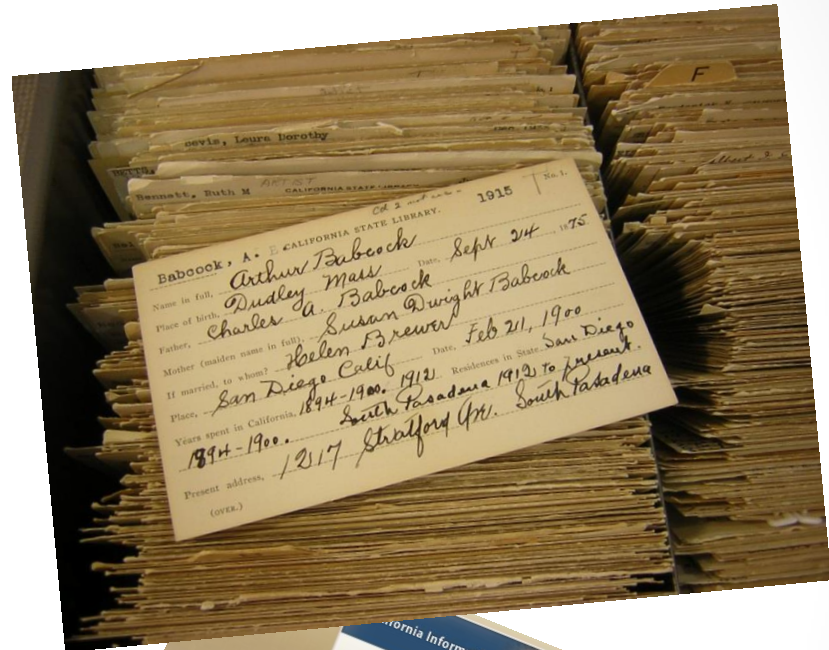 F
sevis, Leura Dorothy
Bennatt, Ruth M ARTIST CALIFORNIA STATE LIBRARY
1915 No. 1.
Babcock, A. E CALIFORNIA STATE LIBRARY.
Name in full, Arthur Babcock
Place of birth, Dudley Mass Date, Sept 24 1875
Father, Charles A. Babcock
Mother (maiden name in full), Susan Dwight Babcock
If married, to whom? Helen Brewer
Place, San Diego Calif Date, Feb 21, 1900
Years spent in California, 1894-1900. 1912 Residences in State San Diego
1894-1900. South Pasadena 1912 to present.
Present address, 1217 Stratford Ave. South Pasadena
(OVER.)
ifornia Inform